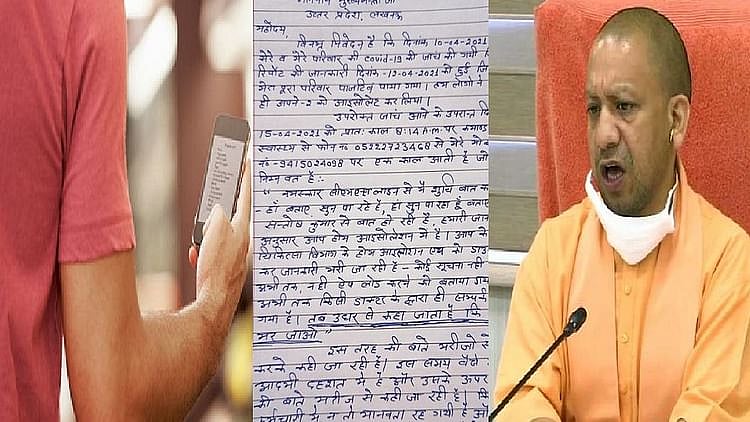 उत्तर प्रदेश, लखनऊ
महोदय,
विनम्र निवेदन है कि दिनांक 10-04-2021
मेरे व मेरे परिवार की Covid-19 की जांच की गयी
रिपोर्ट की जानकारी दिनांक-12-04-2021 को हुई
मेरा पूरा परिवार पाजटिव पाया गया। हम लोगो ने
ही अपने-2 को आइसोलेट कर लिया।
उपरोक्त जांच आने के उपरान्त
15-04-2021 को प्रातः काल 8:14 A.m. पर
स्वास्थ्य से फोन न0 05222723468 से मेरे
न0 -9415024098 पर एक काल आती है जो
निम्नवत है:-
" नमस्कार सीएमहेल्प लाइन से मै शुचि बात
- हाँ बताए सुन पा रहे है, हाँ सुन पा रहा हूँ बताए
सन्तोष कुमार से बात हो रही है, हमारी
अनुसार आप होम आइसोलेशन में है। आप के
चिकित्सा विभाग के होम आइसोलेशन एप को
कर जानकारी भरी जा रही है - कोई सूचना नही
अभी तक, नही ऐप लोड करने को बताया
अभी तक किसी डाक्टर के द्वारा ही सम्पर्क
गया है। तब उधर से कहा जाता है कि
मर जाओ "
इस तरह की बाते मरीजो से
करके कही जा रही है। इस समय वैसे
आदमी दहशत में है और उसके ऊपर
की बाते मरीज से कही जा रही है।
कर्मचारी में न तो मानवता रह गयी है और